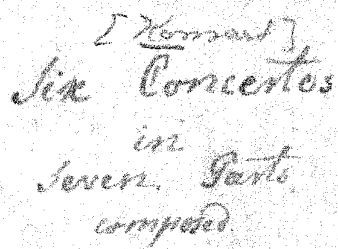 Six Concertos
in
Seven Parts
composed